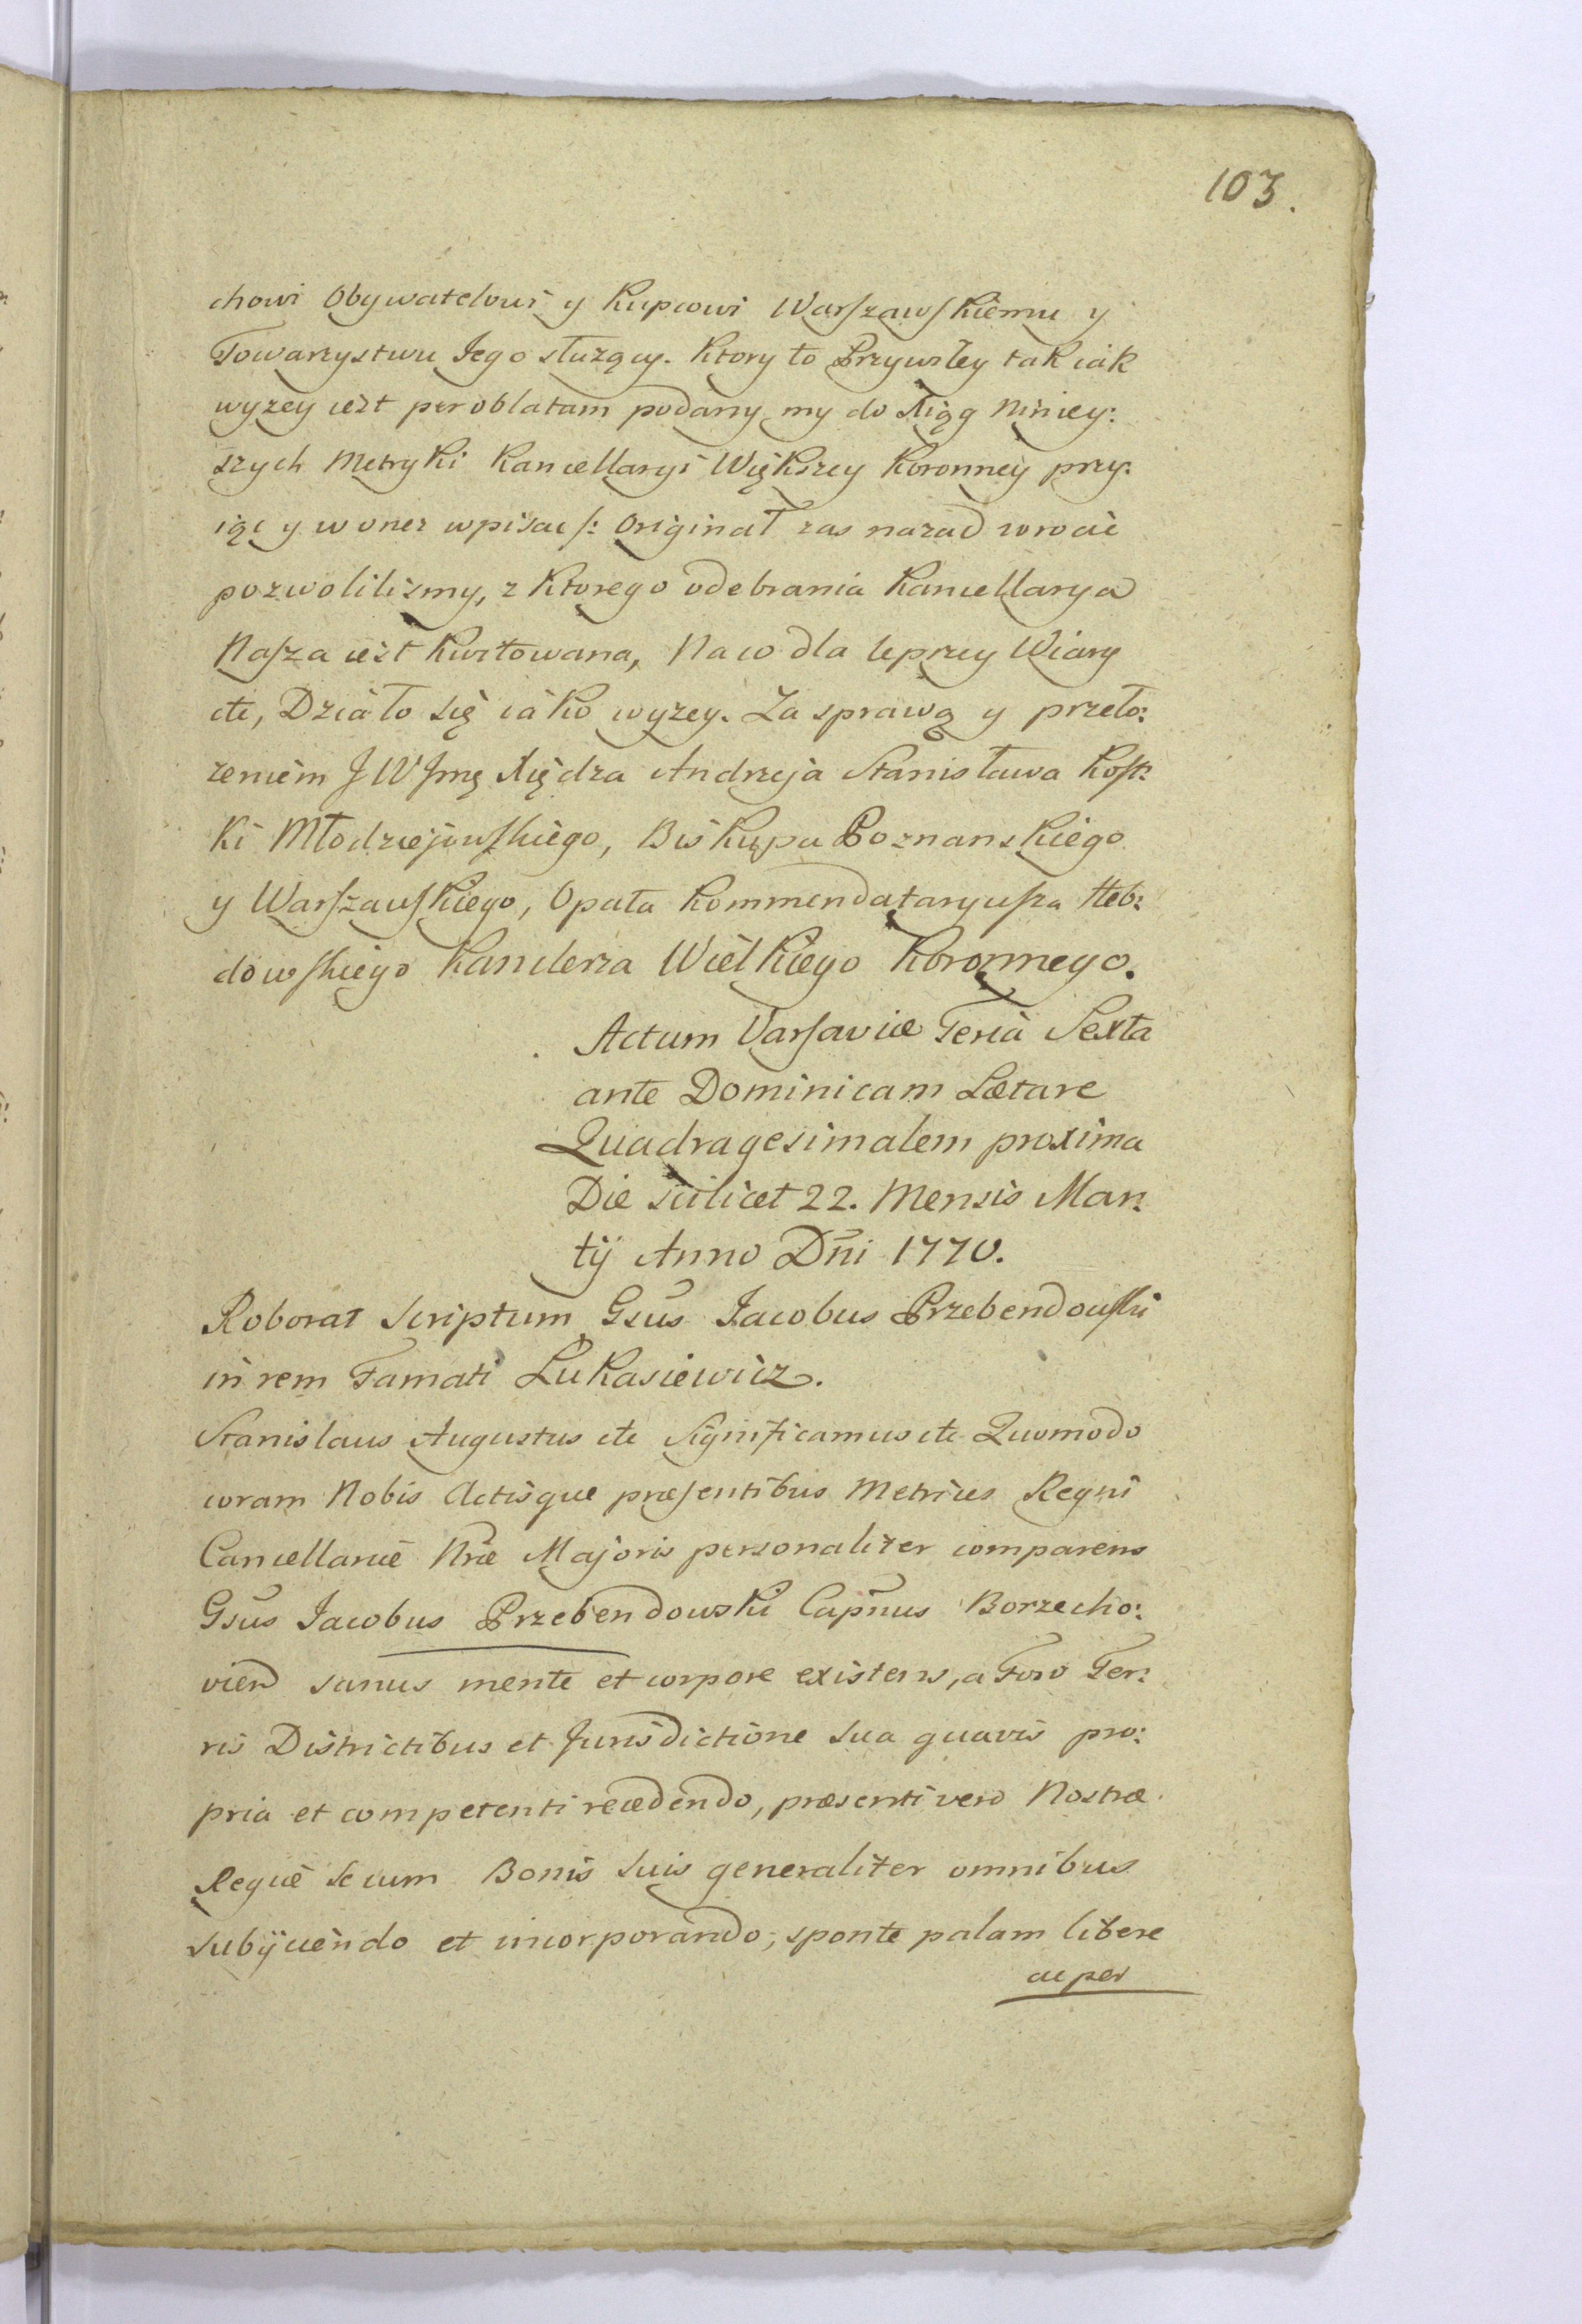 103.
chowi Obywatelowi y Kupcowi Warszawskiemu y
Towarzystwu Jego służący. Ktory to Przywiley tak iak
wyzey iest per oblatam podany my do Xiąg Niniey:
szych Metryki Kancellaryi Większey Koronney przy:
iąć y w onez wpisać /: Originał zas nazad wrocic
pozwolilismy, z Ktorego odebrania Kancellarya
Nasza iest Kwitowana, Na co dla lepszey Wiary
etc, Działo się iako wyzey. Za sprawą y przeło:
zeniem JWJmę Xiędza Andrzeja Stanisława Kost:
Ki Młodziejowskiego, Biskupa Poznanskiego
y Warszawskiego, Opata Kommendataryusza Heb:
dowskiego Kanclerza Wielkiego Koronnego.
Actum Varsaviæ Feria Sexta
ante Dominicam Lætare
Quadragesimalem proxima
Die scilicet 22. Mensis Mar:
tij Anno Dni 1770.
Roborat Scriptum Gsus Jacobus Przebendowski
in rem Famati Lukasiewicz.
Stanislaus Augustus etc Significamus etc Quomodo
coram Nobis Actisque præsentibus Metrices Regni
Cancellariæ Nræ Majoris personaliter comparens
Gsus Jacobus Przebendowski Capnus Borzecho:
vien sanus mente et corpore existens, a Foro Ter:
ris Districtibus et Jurisdictione sua quavis pro:
pria et competenti recedendo, præsenti vero Nostræ
Regiæ se cum Bonis suis generaliter omnibus
subijciendo et incorporando, sponte palam libere
ac per